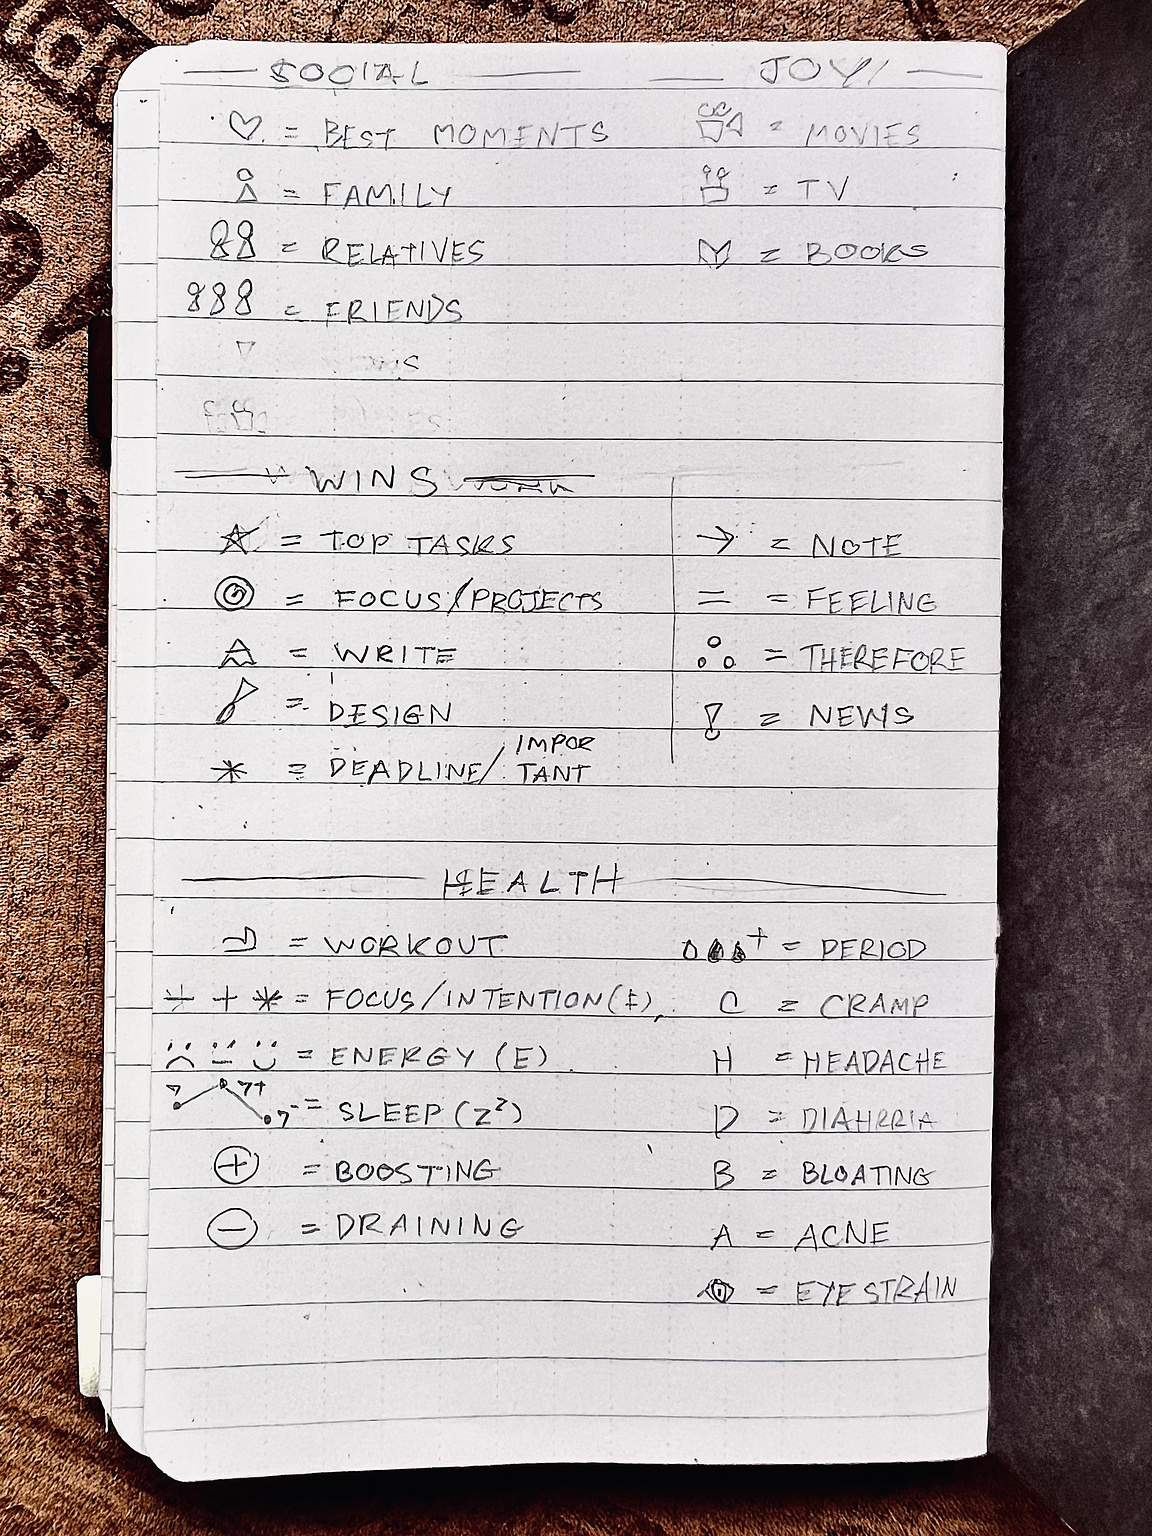 SOCIAL
♡ = BEST MOMENTS
= FAMILY
= RELATIVES
= FRIENDS
JOY!
= MOVIES
= TV
= BOOKS
WINS
☆ = TOP TASKS
◎ = FOCUS/PROJECTS
= WRITE
= DESIGN
* = DEADLINE/IMPOR
TANT
→ = NOTE
= = FEELING
∴ = THEREFORE
! = NEWS
HEALTH
= WORKOUT
+ * = FOCUS/INTENTION(‡)
= ENERGY (E)
7 7+ 7- = SLEEP (Z²)
⊕ = BOOSTING
⊖ = DRAINING
+ = PERIOD
C = CRAMP
H = HEADACHE
D = DIAHRRIA
B = BLOATING
A = ACNE
= EYE STRAIN